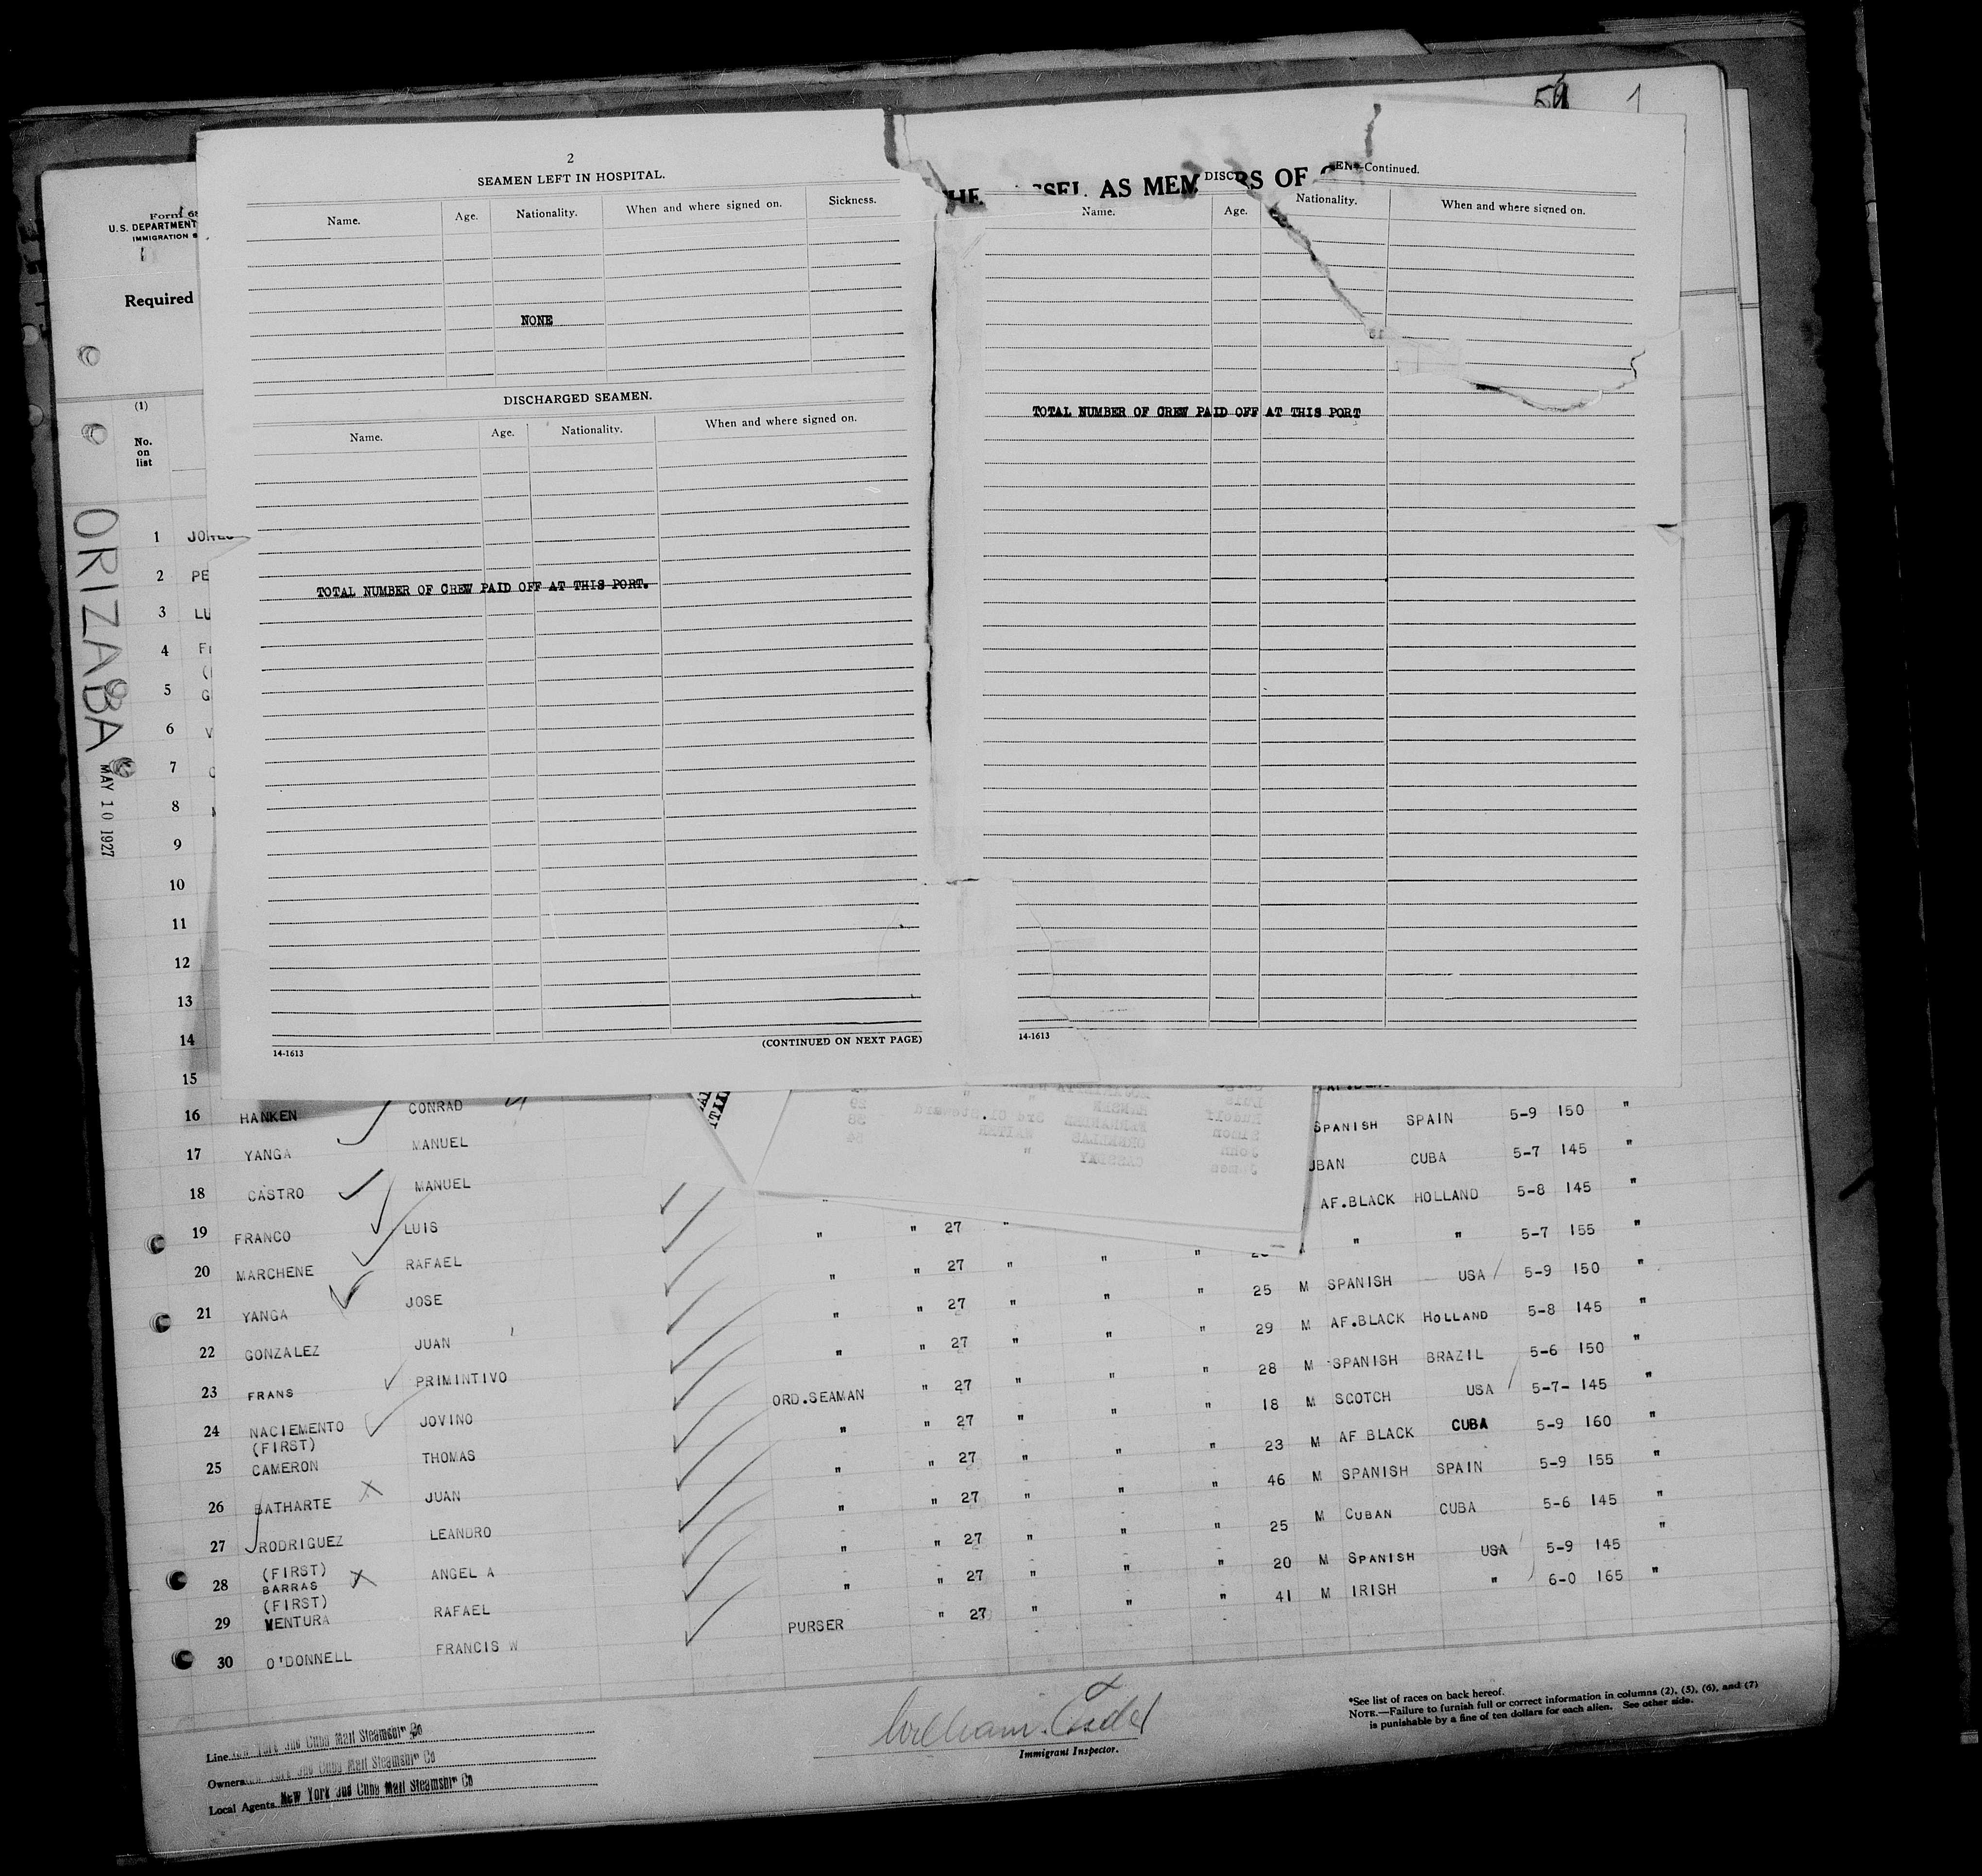 59 1
2
SEAMEN LEFT IN HOSPITAL.
Name. Age. Nationality. When and where signed on. Sickness.
NONE
DISCHARGED SEAMEN.
Name. Age. Nationality. When and where signed on.
TOTAL NUMBER OF CREW PAID OFF AT THIS PORT.
14-1613
(CONTINUED ON NEXT PAGE)
AS MEM RS OF
DISC EN—Continued.
Name. Age. Nationality. When and where signed on.
TOTAL NUMBER OF CREW PAID OFF AT THIS PORT
14-1613
U.S. DEPARTMENT
IMMIGRATION
Required
(1)
No.
on
list
ORIZABA
MAY 10 1927
1
2 PE
3 LU
4
5 G
6 V
7
8
9
10
11
12
13
14
15
16 HANKEN CONRAD SPANISH SPAIN 5-9 150 "
17 YANGA MANUEL UBAN CUBA 5-7 145 "
18 CASTRO MANUEL AF.BLACK HOLLAND 5-8 145 "
19 FRANCO LUIS " " 27 " " " 5-7 155 "
20 MARCHENE RAFAEL " " 27 " " " 25 M SPANISH USA 5-9 150 "
21 YANGA JOSE " " 27 " " " 29 M AF.BLACK HOLLAND 5-8 145 "
22 GONZALEZ JUAN " " 27 " " " 28 M SPANISH BRAZIL 5-6 150 "
23 FRANS PRIMINTIVO ORD.SEAMAN " 27 " " " 18 M SCOTCH USA 5-7- 145 "
24 NACIEMENTO JOVINO " " 27 " " " 23 M AF BLACK CUBA 5-9 160 "
(FIRST)
25 CAMERON THOMAS " " 27 " " " 46 M SPANISH SPAIN 5-9 155 "
26 BATHARTE JUAN " " 27 " " " 25 M CUBAN CUBA 5-6 145 "
27 RODRIGUEZ LEANDRO " " 27 " " " 20 M SPANISH USA 5-9 145 "
(FIRST)
28 BARRAS ANGEL A " " 27 " " " 41 M IRISH " 6-0 165 "
(FIRST)
29 VENTURA RAFAEL PURSER " 27 "
30 O'DONNELL FRANCIS W
Line New York and Cuba Mail Steamship Co
Owners New York and Cuba Mail Steamship Co
Local Agents New York and Cuba Mail Steamship Co
William
Immigrant Inspector.
*See list of races on back hereof.
NOTE.—Failure to furnish full or correct information in columns (2), (5), (6), and (7)
is punishable by a fine of ten dollars for each alien. See other side.